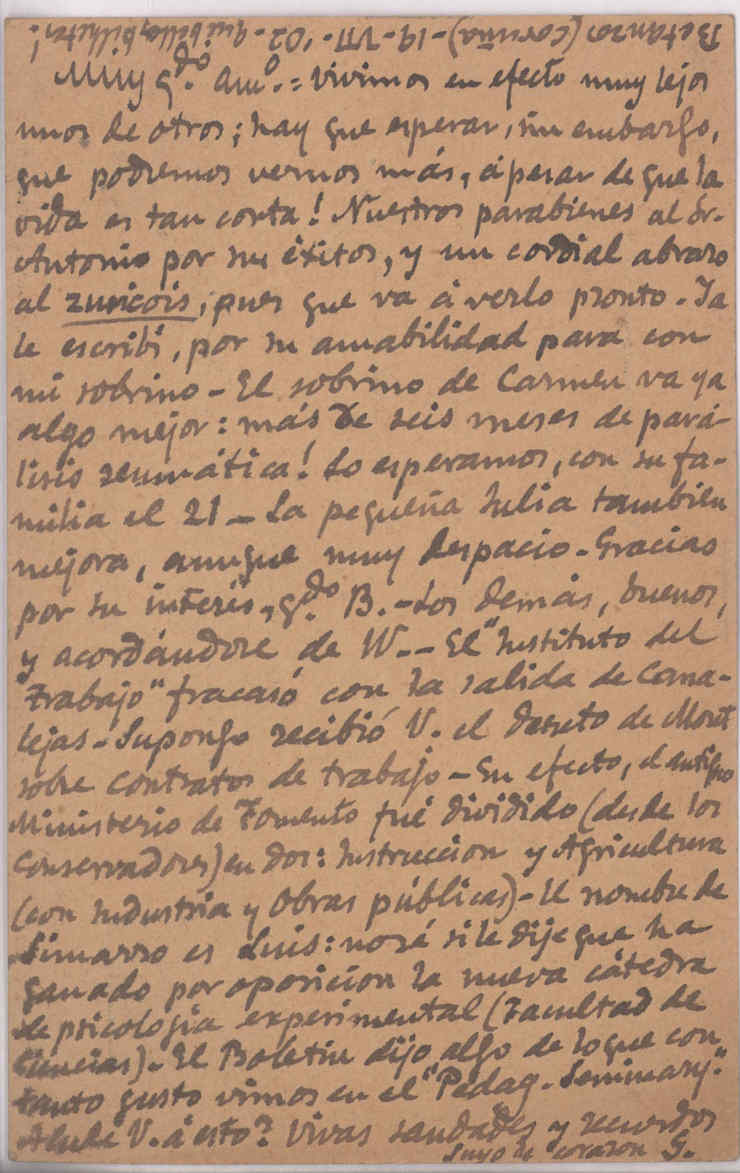 Betanzos (Coruña) - 19-VII-'02 -
Muy q.do am.o = Vivimos en efecto muy lejos
unos de otros; hay que esperar, sin embargo,
que podremos vernos más, á pesar de que la
vida es tan corta! Nuestros parabienes al Sr.
Antonio por su éxitos, y un cordial abrazo
al zuricois, pues que va á verlo pronto. Ya
le escribí, por su amabilidad para con
mi sobrino - El sobrino de Carmen va ya
algo mejor: más de seis meses de pará-
lisis reumática! Lo esperamos, con su fa-
milia el 21 - La pequeña Julia también
mejora, aunque muy despacio - Gracias
por su interés, q.do B. - Los demás, buenos,
y acordándose de W. - El "Instituto del
Trabajo" fracasó con la salida de Cana-
lejas - Supongo recibió V. el decreto de Moret
sobre contratos de trabajo - En efecto, el antiguo
Ministerio de Fomento fué dividido (desde los
Conservadores) en dos: Instruccion y Agricultura
(con Industria y Obras públicas) - El nombre de
Simarro es Luis: no sé si le dije que ha
ganado por oposicion la nueva cátedra
de psicología experimental (Facultad de
Ciencias) - El Boletin dijo algo de lo que con
tanto gusto vimos en el "Pedag. Seminary."
Alude V. á esto? Vivas saudades y recuerdos
Suyo de corazon G.